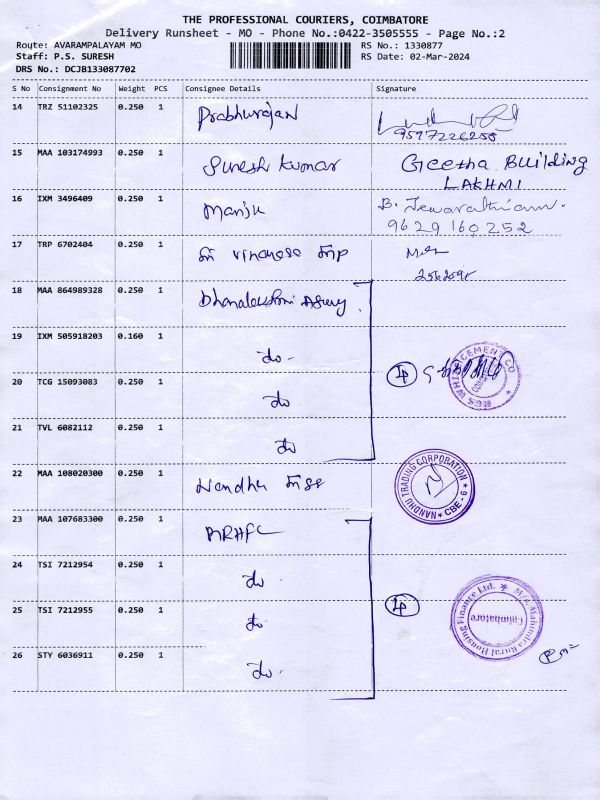 THE PROFESSIONAL COURIERS, COIMBATORE
Delivery Runsheet - MO - Phone No.:0422-3505555 - Page No.:2
Route: AVARAMPALAYAM MO
RS No.: 1330877
Staff: P.S. SURESH
RS Date: 02-Mar-2024
DRS No.: DCJB133087702
S No Consignment No Weight PCS Consignee Details Signature
14 TRZ 51102325 0.250 1 Prabhurajan
9597226258
15 MAA 103174993 0.250 1 Suresh kumar Geetha Building
LAKHMI
16 IXM 3496409 0.250 1 Manju B. Jewarathinam.
9629160252
17 TRP 6702404 0.250 1
18 MAA 864989328 0.250 1 Dhanalakshmi
19 IXM 505918203 0.160 1 do.
20 TCG 15093083 0.250 1 do
21 TVL 6082112 0.250 1 do
22 MAA 108020300 0.250 1 Nandhu
NANDHU TRADING CORPORATION
CBE - 6
23 MAA 107683300 0.250 1 MRHFL
24 TSI 7212954 0.250 1 do.
25 TSI 7212955 0.250 1 do.
M/s. Mahindra Rural Housing Finance Ltd.
Coimbatore
26 STY 6036911 0.250 1 do.